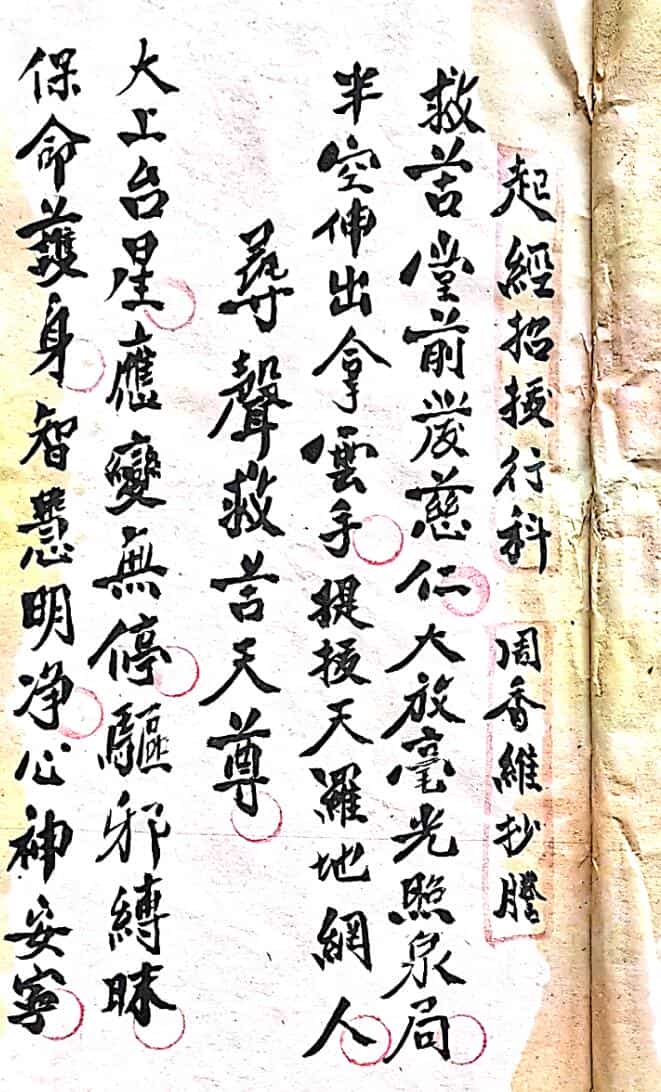 起經招拔行科 周香維抄謄
救苦堂前發慈仁大放毫光照泉局
半空伸出拿雲手提拔天羅地網人
尋聲救苦天尊
大上台星應變無停驅邪縛昧
保命護身智慧明净心神安寧